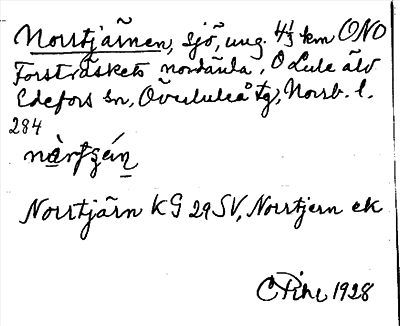 Norrtjärnen, sjö, ung. 4 1/3 km ONO
Forsträskets nordända, Ö Lule älv
Edefors sn, Överluleå tg, Norrb. l.
284
Norrtjärn KG 29 SV, Norrtjern ek
C Pihl 1928